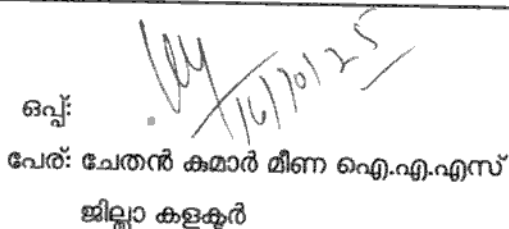 16/10/25
ഒപ്പ്:
പേര്: ചേതൻ കുമാർ മീണ ഐ.എ.എസ്
ജില്ലാ കളക്ടർ